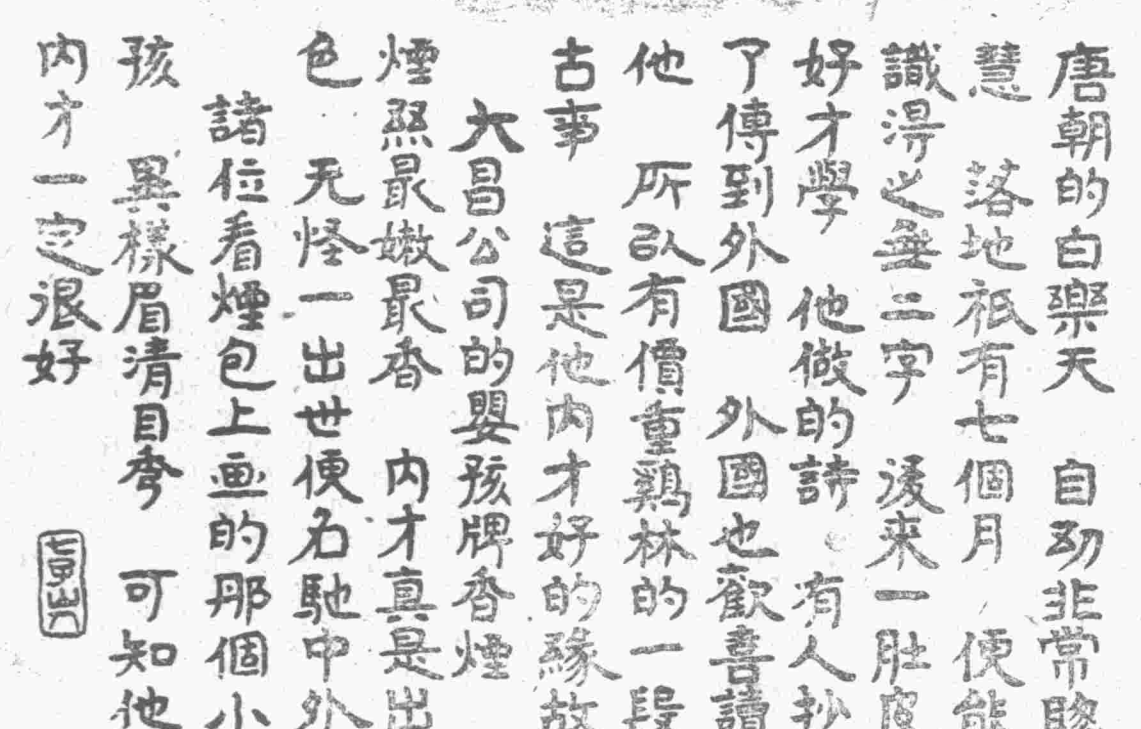 唐朝的白樂天　自幼非常聰
慧　落地祇有七個月　便能
識得之無二字　後来一肚皮
好才學　他做的詩　有人抄
了傳到外國　外國也歡喜讀
他　所以有價重鷄林的一段
古事　這是他内才好的緣故
大昌公司的嬰孩牌香煙
煙絲最嫩最香　内才真是出
色　无怪一出世便名馳中外
諸位看煙包上画的那個小
孩　異樣眉清目秀　可知他
内才一定很好